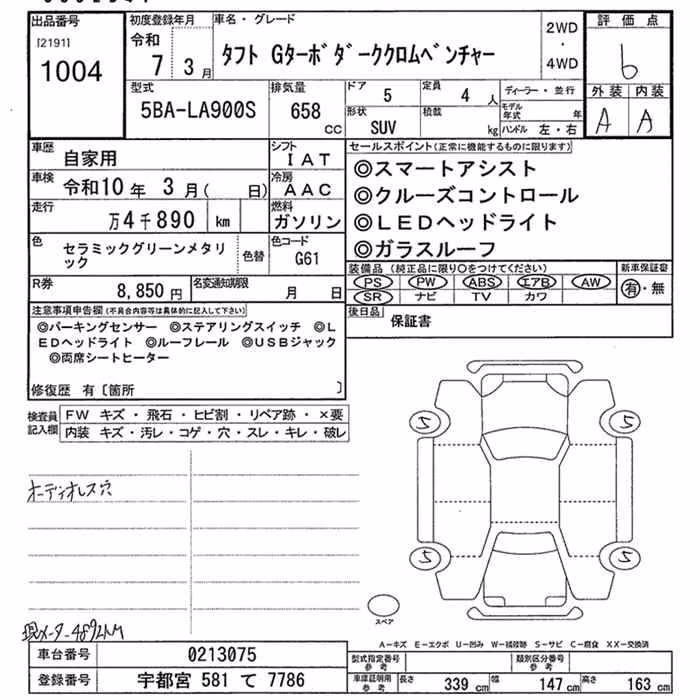 出品番号
[2191]
1004
初度登録年月
令和
7 3月
車名・グレード
タフト Gターボダーククロムベンチャー
2WD
・
4WD
評価点
6
外装 内装
A A
型式
5BA-LA900S
排気量
658
cc
ドア
5
定員
4 人
形状
SUV
積載
kg
ディーラー・並行
モデル年式 年
ハンドル 左・右
車歴
自家用
シフト
IAT
車検
令和10年 3月( 日)
冷房
AAC
走行
万4千890 km
燃料
ガソリン
色
セラミックグリーンメタリ
ック
色替
色コード
G61
R券
8,850円
名変通知期限
月 日
セールスポイント(正常に機能するものに限ります)
◎スマートアシスト
◎クルーズコントロール
◎LEDヘッドライト
◎ガラスルーフ
装備品(純正品に限り○をつけてください)
PS PW ABS エアB AW
SR ナビ TV カワ
新車保証書
有・無
後日品
保証書
注意事項申告欄(不具合内容等は具体的に記入して下さい)
◎パーキングセンサー ◎ステアリングスイッチ ◎L
EDヘッドライト ◎ルーフレール ◎USBジャック
◎両席シートヒーター
修復歴 有〔箇所 〕
検査員
記入欄
FW キズ・飛石・ヒビ割・リペア跡・×要
内装 キズ・汚レ・コゲ・穴・スレ・キレ・破レ
オーディオレス穴
現メーター4892KM
5 5
5 5
スペア
A−キズ E−エクボ U−凹み W−補修跡 S−サビ C−腐食 XX−交換済
車台番号
0213075
登録番号
宇都宮 581 て 7786
型式指定番号
参考
類別区分番号
参考
車庫証明用
参考
長さ 339 cm
幅 147 cm
高さ 163 cm